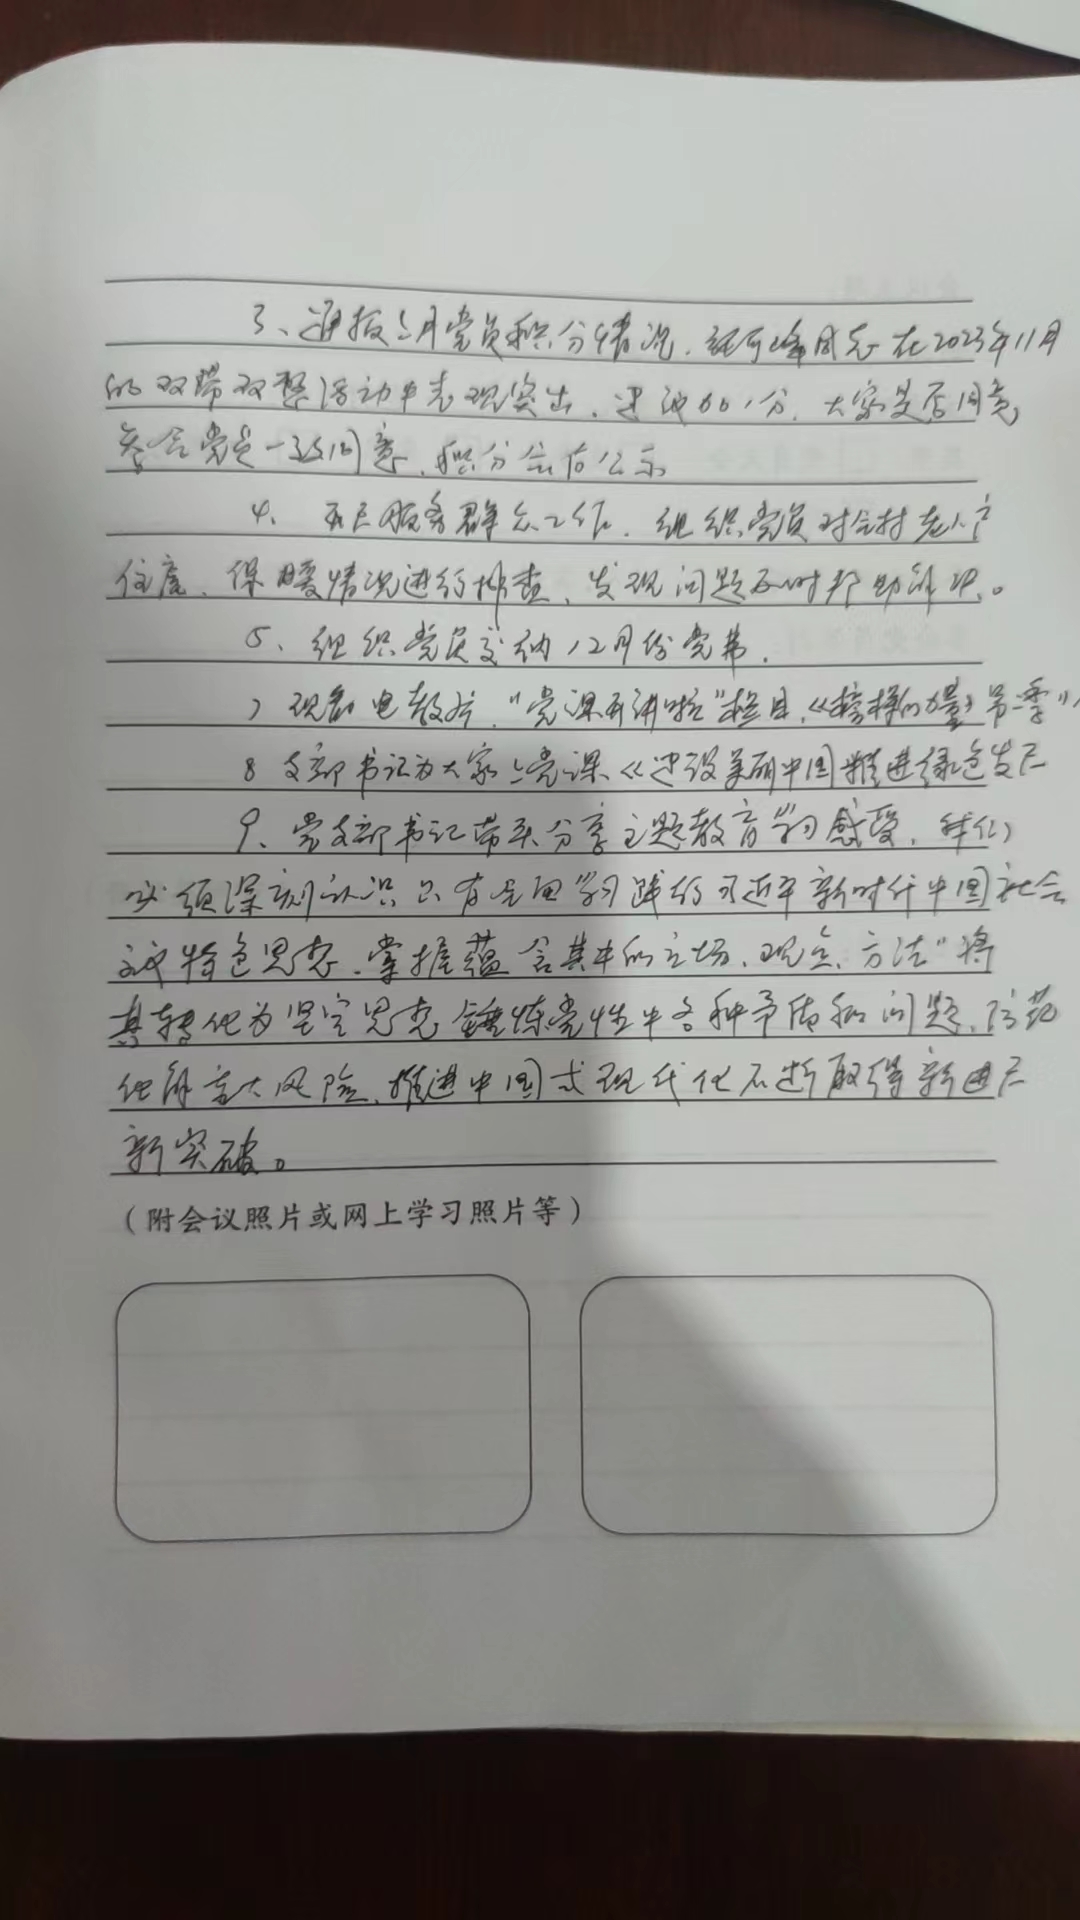 3、通报上月党员积分情况，同志在2023年11月
的双带双整活动中表现突出，建议加1分，大家是否同意
参会党员一致同意，积分会后公示
4、开展服务群众工作，组织党员对全村老人户
住房、保暖情况进行排查，发现问题及时帮助解决。
5、组织党员交纳12月份党费，
7 观看电教片，"党课开讲啦"栏目，《榜样的力量》第一季"
8 支部书记为大家上党课《建设美丽中国推进绿色发展
9、党支部书记带头分享主题教育学习感受，我们
必须深刻认识只有全面学习践行习近平新时代中国社会
主义特色思想，掌握蕴含其中的立场、观点、方法"将
其转化为坚定思想锤炼党性中各种矛盾和问题，防范
化解重大风险，推进中国式现代化不断取得新进展
新突破。
（附会议照片或网上学习照片等）